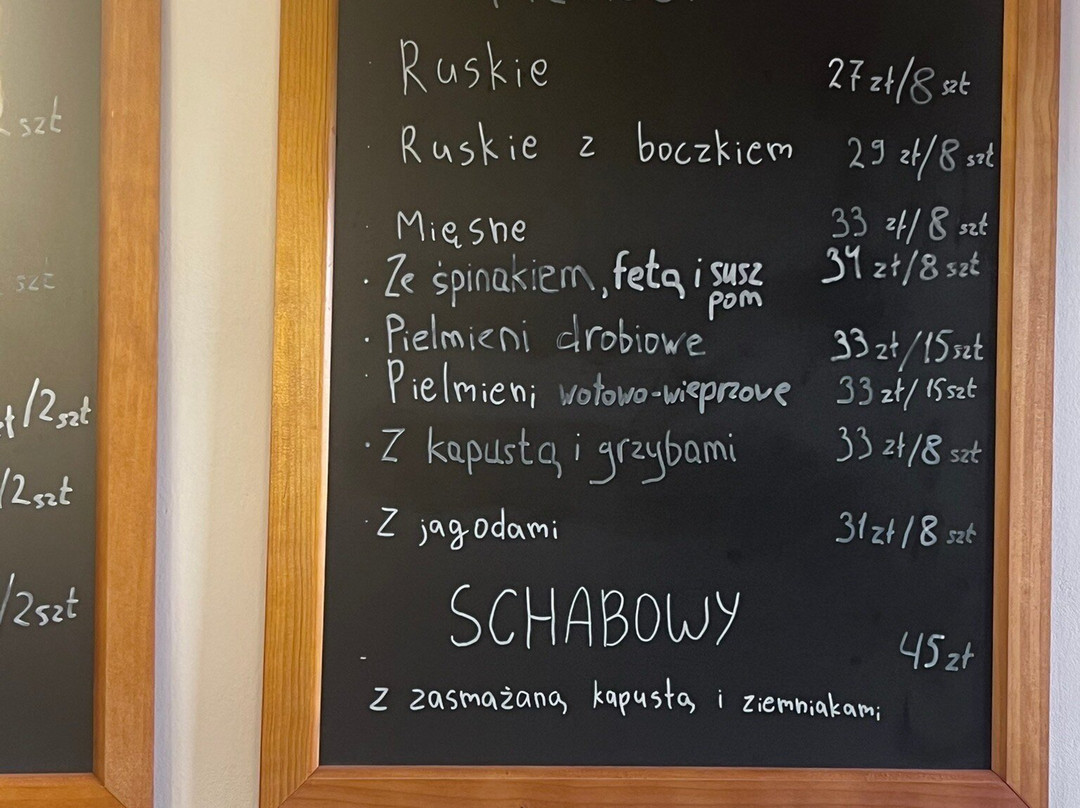 szt
szt
/2szt
/2szt
/2szt
Ruskie 27 zł/8 szt
Ruskie z boczkiem 29 zł/8 szt
Mięsne 33 zł/8 szt
Ze śpinakiem, fetą i susz pom 34 zł/8 szt
Pielmieni drobiowe 33 zł/15 szt
Pielmieni wołowo-wieprzowe 33 zł/15 szt
Z kapustą i grzybami 33 zł/8 szt
Z jagodami 31 zł/8 szt
SCHABOWY 45 zł
z zasmażaną kapustą i ziemniakami